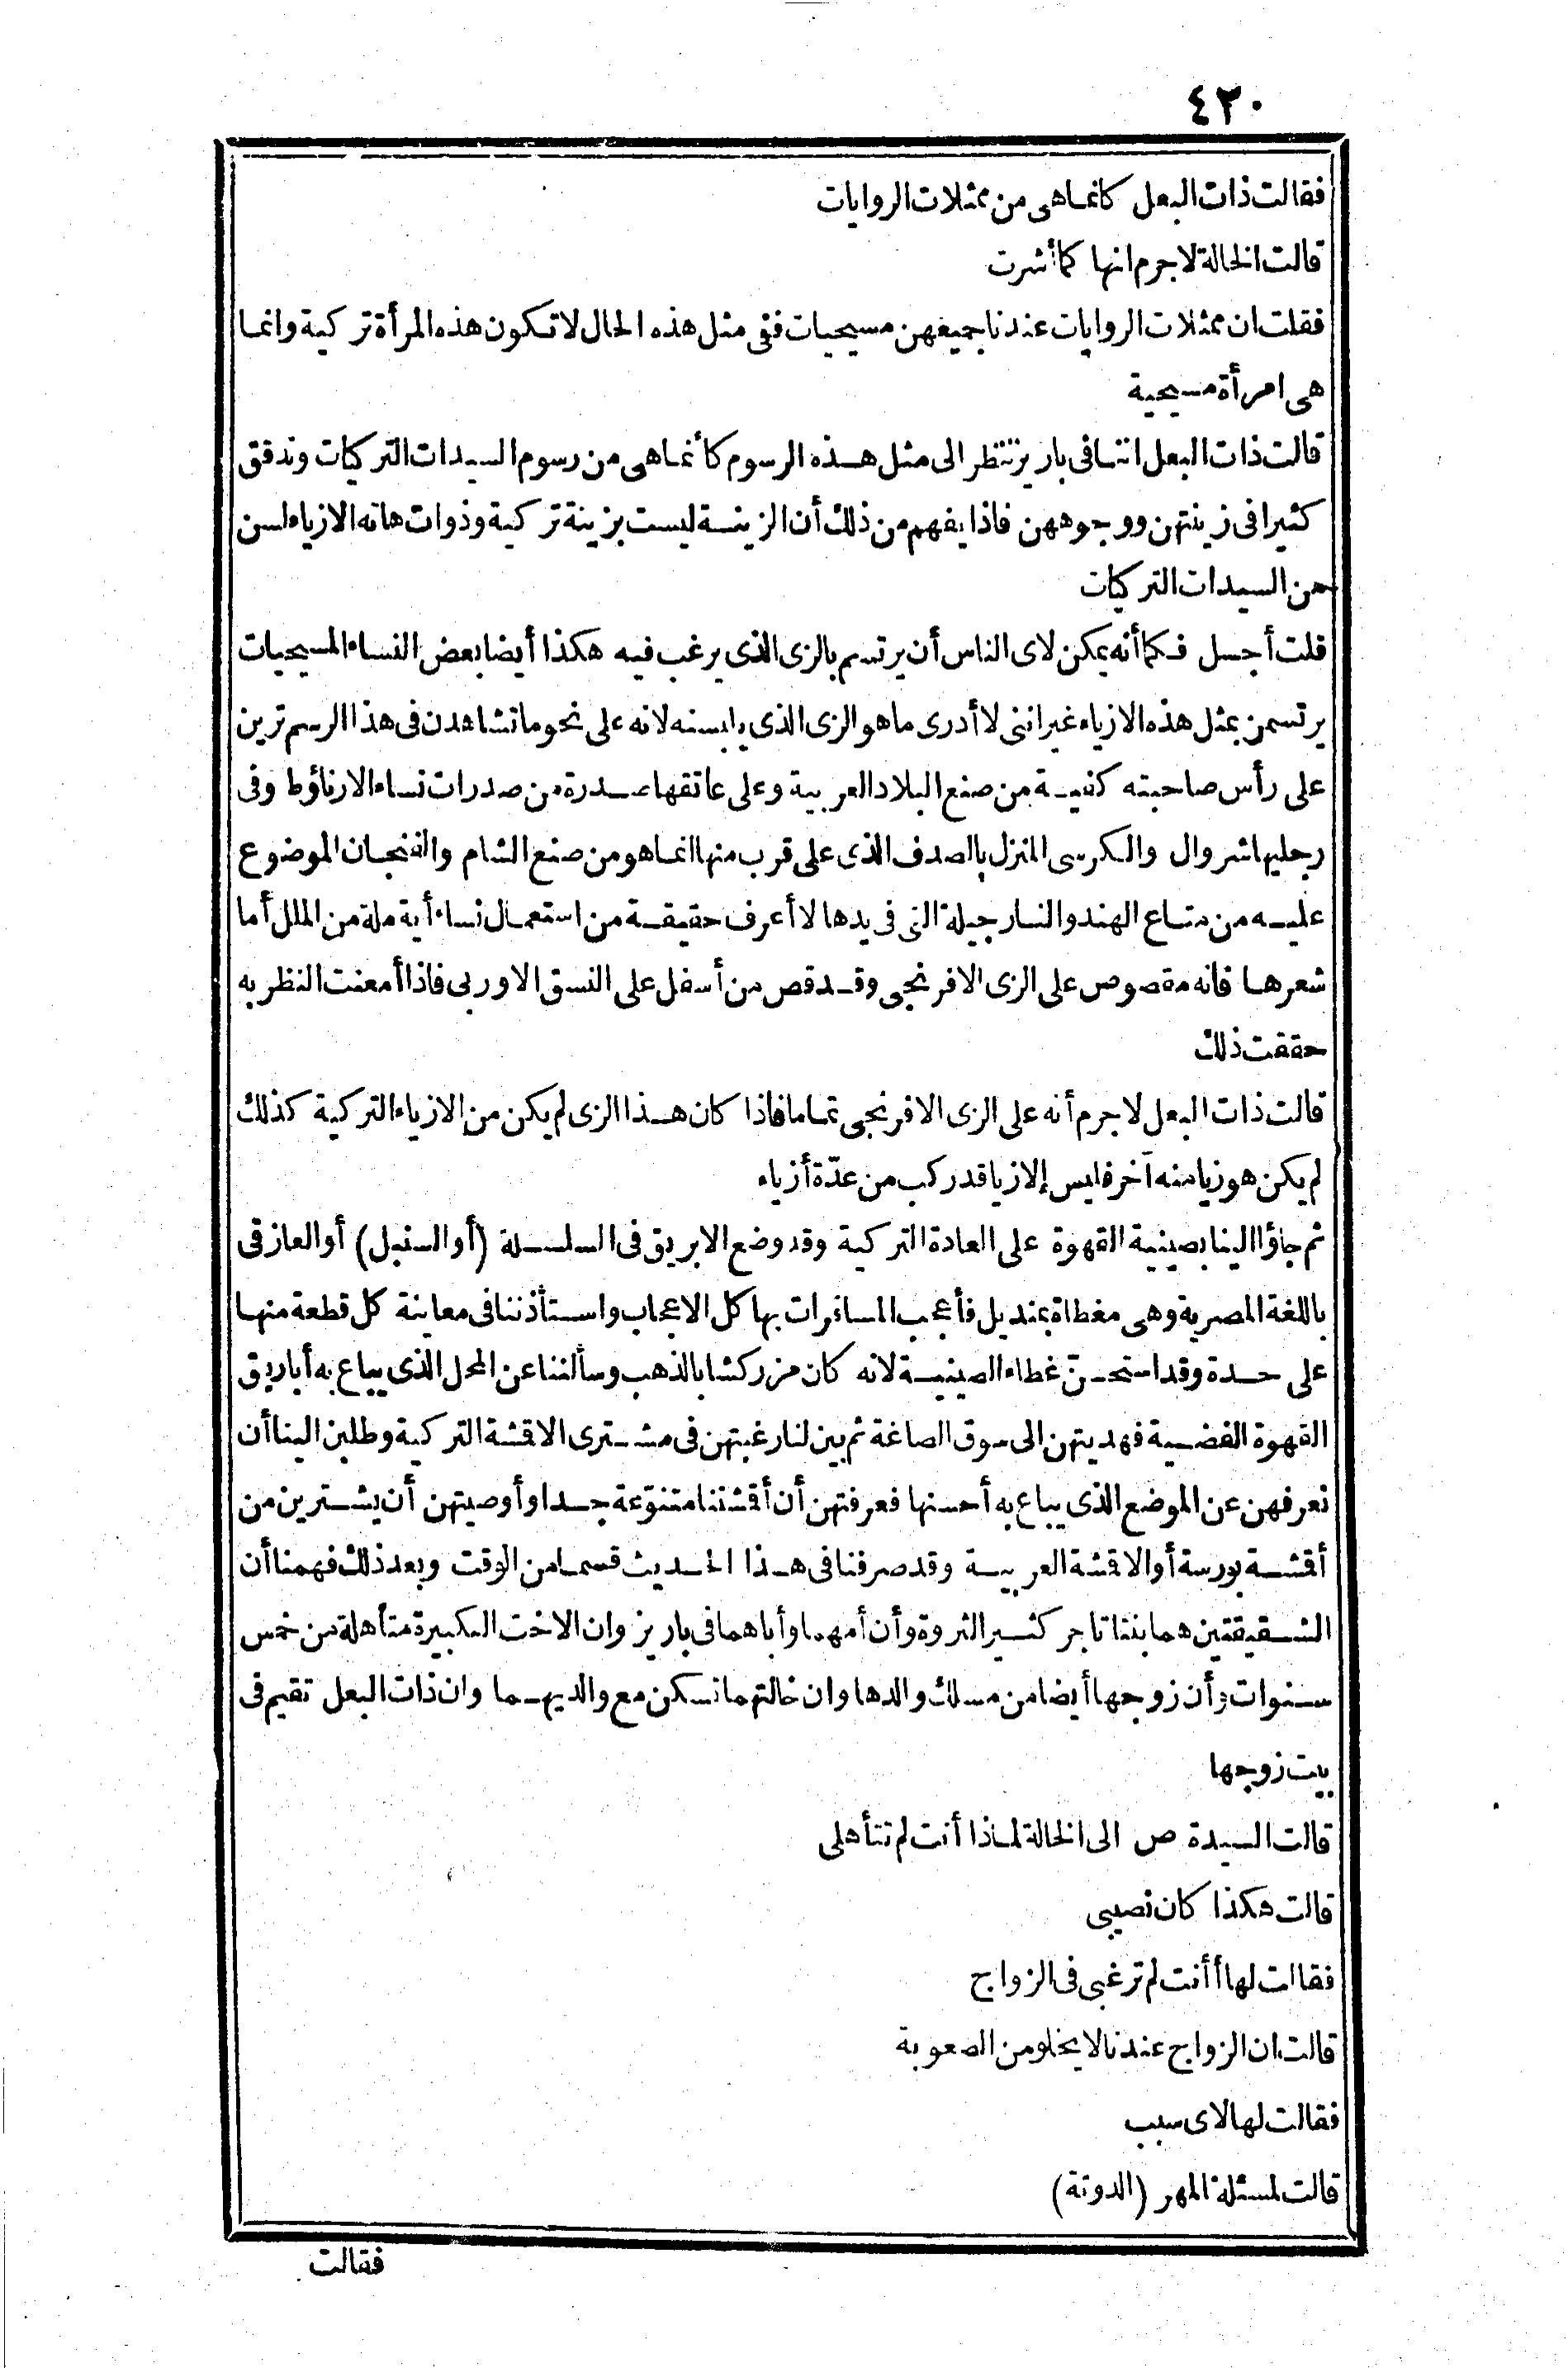 ٤٢٠
فقالت ذات البعل كانما هى من ممثلات الروايات
قالت الخالة لا جرم انها كما أشرت
فقلت ان ممثلات الروايات عندنا جميعهن مسيحيات ففى مثل هذه الحال لا تكون هذه المرأة تركية وانما
هى امرأة مسيحية
قالت ذات البعل اننا فى باريز ننظر الى مثل هذه الرسوم كأنما هى من رسوم السيدات التركيات وندقق
كثيرا فى زينتهن ووجوههن فاذا يفهم من ذلك أن الزينة ليست بزينة تركية وذوات هاته الازياء لسن
من السيدات التركيات
قلت أجل فكما أنه يمكن لاى الناس أن يرتسم بالزى الذى يرغب فيه هكذا أيضا بعض النساء المسيحيات
يرتسمن بمثل هذه الازياء غير اننى لا أدرى ما هو الزى الذى يلبسنه لانه على نحو ما تشاهدن فى هذا الرسم ترين
على رأس صاحبته كفية من صنع البلاد العربية وعلى عاتقها صدرة من صدرات نساء الارناؤط وفى
رجليها شروال والكرسى المنزل بالصدف الذى على قرب منها انما هو من صنع الشام والفنجان الموضوع
عليه من متاع الهند والنارجيلة التى فى يدها لا أعرف حقيقة من استعمال نساء أية ملة من الملل أما
شعرها فانه مقصوص على الزى الافرنجى وقد قص من أسفل على النسق الاوربى فاذا أمعنت النظر به
حققت ذلك
قالت ذات البعل لا جرم أنه على الزى الافرنجى تماما فاذا كان هذا الزى لم يكن من الازياء التركية كذلك
لم يكن هو زيا منه آخر فليس إلا زيا قد ركب من عدّة أزياء
ثم جاؤا الينا بصينية القهوة على العادة التركية وقد وضع الابريق فى السلسلة (أو السنبل) أو العازقى
باللغة المصرية وهى مغطاة بمنديل فأعجب المسافرات بها كل الاعجاب واستأذننا فى معاينة كل قطعة منها
على حدة وقد استحسن غطاء الصينية لانه كان مزركشا بالذهب وسألننا عن المحل الذى يباع به أباريق
القهوة الفضية فهديتهن الى سوق الصاغة ثم بين لنا رغبتهن فى مشترى الاقشة التركية وطلبن الينا أن
نعرفهن عن الموضع الذى يباع به أحسنها فعرفتهن أن أقشتنا متنوّعة جدا وأوصيتهن أن يشترين من
أقشة بورسة أو الاقشة العربية وقد صرفنا فى هذا الحديث قسما من الوقت وبعد ذلك فهمنا أن
الشقيقتين هما بنتا تاجر كثير الثروة وأن أمهما وأباهما فى باريز وان الاخت الكبيرة متأهلة من خمس
سنوات وأن زوجها أيضا من مسلك والدها وان خالتهما تسكن مع والديهما وان ذات البعل تقيم فى
بيت زوجها
قالت السيدة ص الى الخالة لماذا أنت لم تتأهلى
قالت هكذا كان نصيبى
فقالت لها أأنت لم ترغبى فى الزواج
قالت ان الزواج عندنا لا يخلو من الصعوبة
فقالت لها لاى سبب
قالت لمسئلة المهر (الدوتة)
فقالت